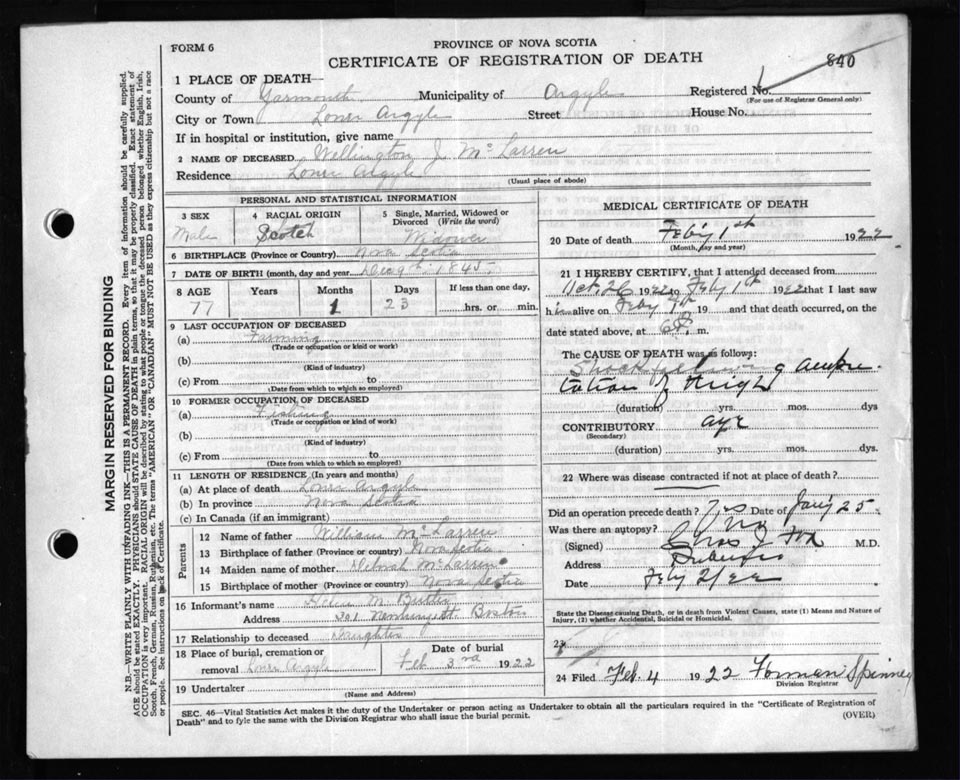 FORM 6
PROVINCE OF NOVA SCOTIA
CERTIFICATE OF REGISTRATION OF DEATH
840
1 PLACE OF DEATH—
County of Yarmouth Municipality of Argyle Registered No.
(For use of Registrar General only)
City or Town Lower Argyle Street House No.
If in hospital or institution, give name
2 NAME OF DECEASED Wellington J. McLarren
Residence Lower Argyle
(Usual place of abode)
PERSONAL AND STATISTICAL INFORMATION
3 SEX
Male
4 RACIAL ORIGIN
Scotch
5 Single, Married, Widowed or Divorced (Write the word)
Widower
6 BIRTHPLACE (Province or Country) Nova Scotia
7 DATE OF BIRTH (month, day and year) Dec 9th 1845
8 AGE Years Months Days If less than one day,
77 1 23 hrs. or min.
9 LAST OCCUPATION OF DECEASED
(a) Farming
(Trade or occupation or kind or work)
(b)
(Kind of industry)
(c) From to
(Date from which to which so employed)
10 FORMER OCCUPATION OF DECEASED
(a) Fishing
(Trade or occupation or kind of work)
(b)
(Kind of industry)
(c) From to
(Date from which to which so employed)
11 LENGTH OF RESIDENCE (In years and months)
(a) At place of death Lower Argyle
(b) In province Nova Scotia
(c) In Canada (if an immigrant)
Parents
12 Name of father William McLarren
13 Birthplace of father (Province or country) Nova Scotia
14 Maiden name of mother Deborah McLarren
15 Birthplace of mother (Province or country) Nova Scotia
16 Informant's name M. Butler
Address 301 Boston
17 Relationship to deceased Daughter
18 Place of burial, cremation or removal Lower Argyle
Date of burial
Feb 3rd 1922
19 Undertaker
(Name and Address)
MEDICAL CERTIFICATE OF DEATH
20 Date of death Feb'y 1st 1922
(Month, day and year)
21 I HEREBY CERTIFY, that I attended deceased from
Oct. 26 1922 to Feby 1st 1922 that I last saw
him alive on Feby 19 and that death occurred, on
date stated above, at m.
The CAUSE OF DEATH was as follows:
Shock following ampu-
tation of thigh
(duration) yrs. mos. dys
CONTRIBUTORY age
(Secondary)
(duration) yrs. mos. dys.
22 Where was disease contracted if not at place of death?
Did an operation precede death? Yes Date of Jany 25
Was there an autopsy? No
(Signed) Fox M.D.
Address Pubnico
Date Feby 2/22
State the Disease causing Death, or in death from Violent Causes, state (1) Means and Nature of Injury, (2) whether Accidental, Suicidal or Homicidal.
23
24 Filed Feb. 4 1922 Forman Spinney
Division Registrar
SEC. 46—Vital Statistics Act makes it the duty of the Undertaker or person acting as Undertaker to obtain all the particulars required in the "Certificate of Registration of
Death" and to fyle the same with the Division Registrar who shall issue the burial permit.
(OVER)
MARGIN RESERVED FOR BINDING
N.B.—WRITE PLAINLY WITH UNFADING INK—THIS IS A PERMANENT RECORD. Every item of information should be carefully supplied.
AGE should be stated EXACTLY. PHYSICIANS should STATE CAUSE OF DEATH in plain terms, so that it may be properly classified. Exact statement of
OCCUPATION is very important. RACIAL ORIGIN will be described by stating to what people or tongue the deceased person belonged whether English, Irish,
Scotch, French, German, Russian, Ruthenian, etc. The terms "AMERICAN" OR "CANADIAN" MUST NOT BE USED as they express citizenship but not a race
or people. See instructions on back of Certificate.